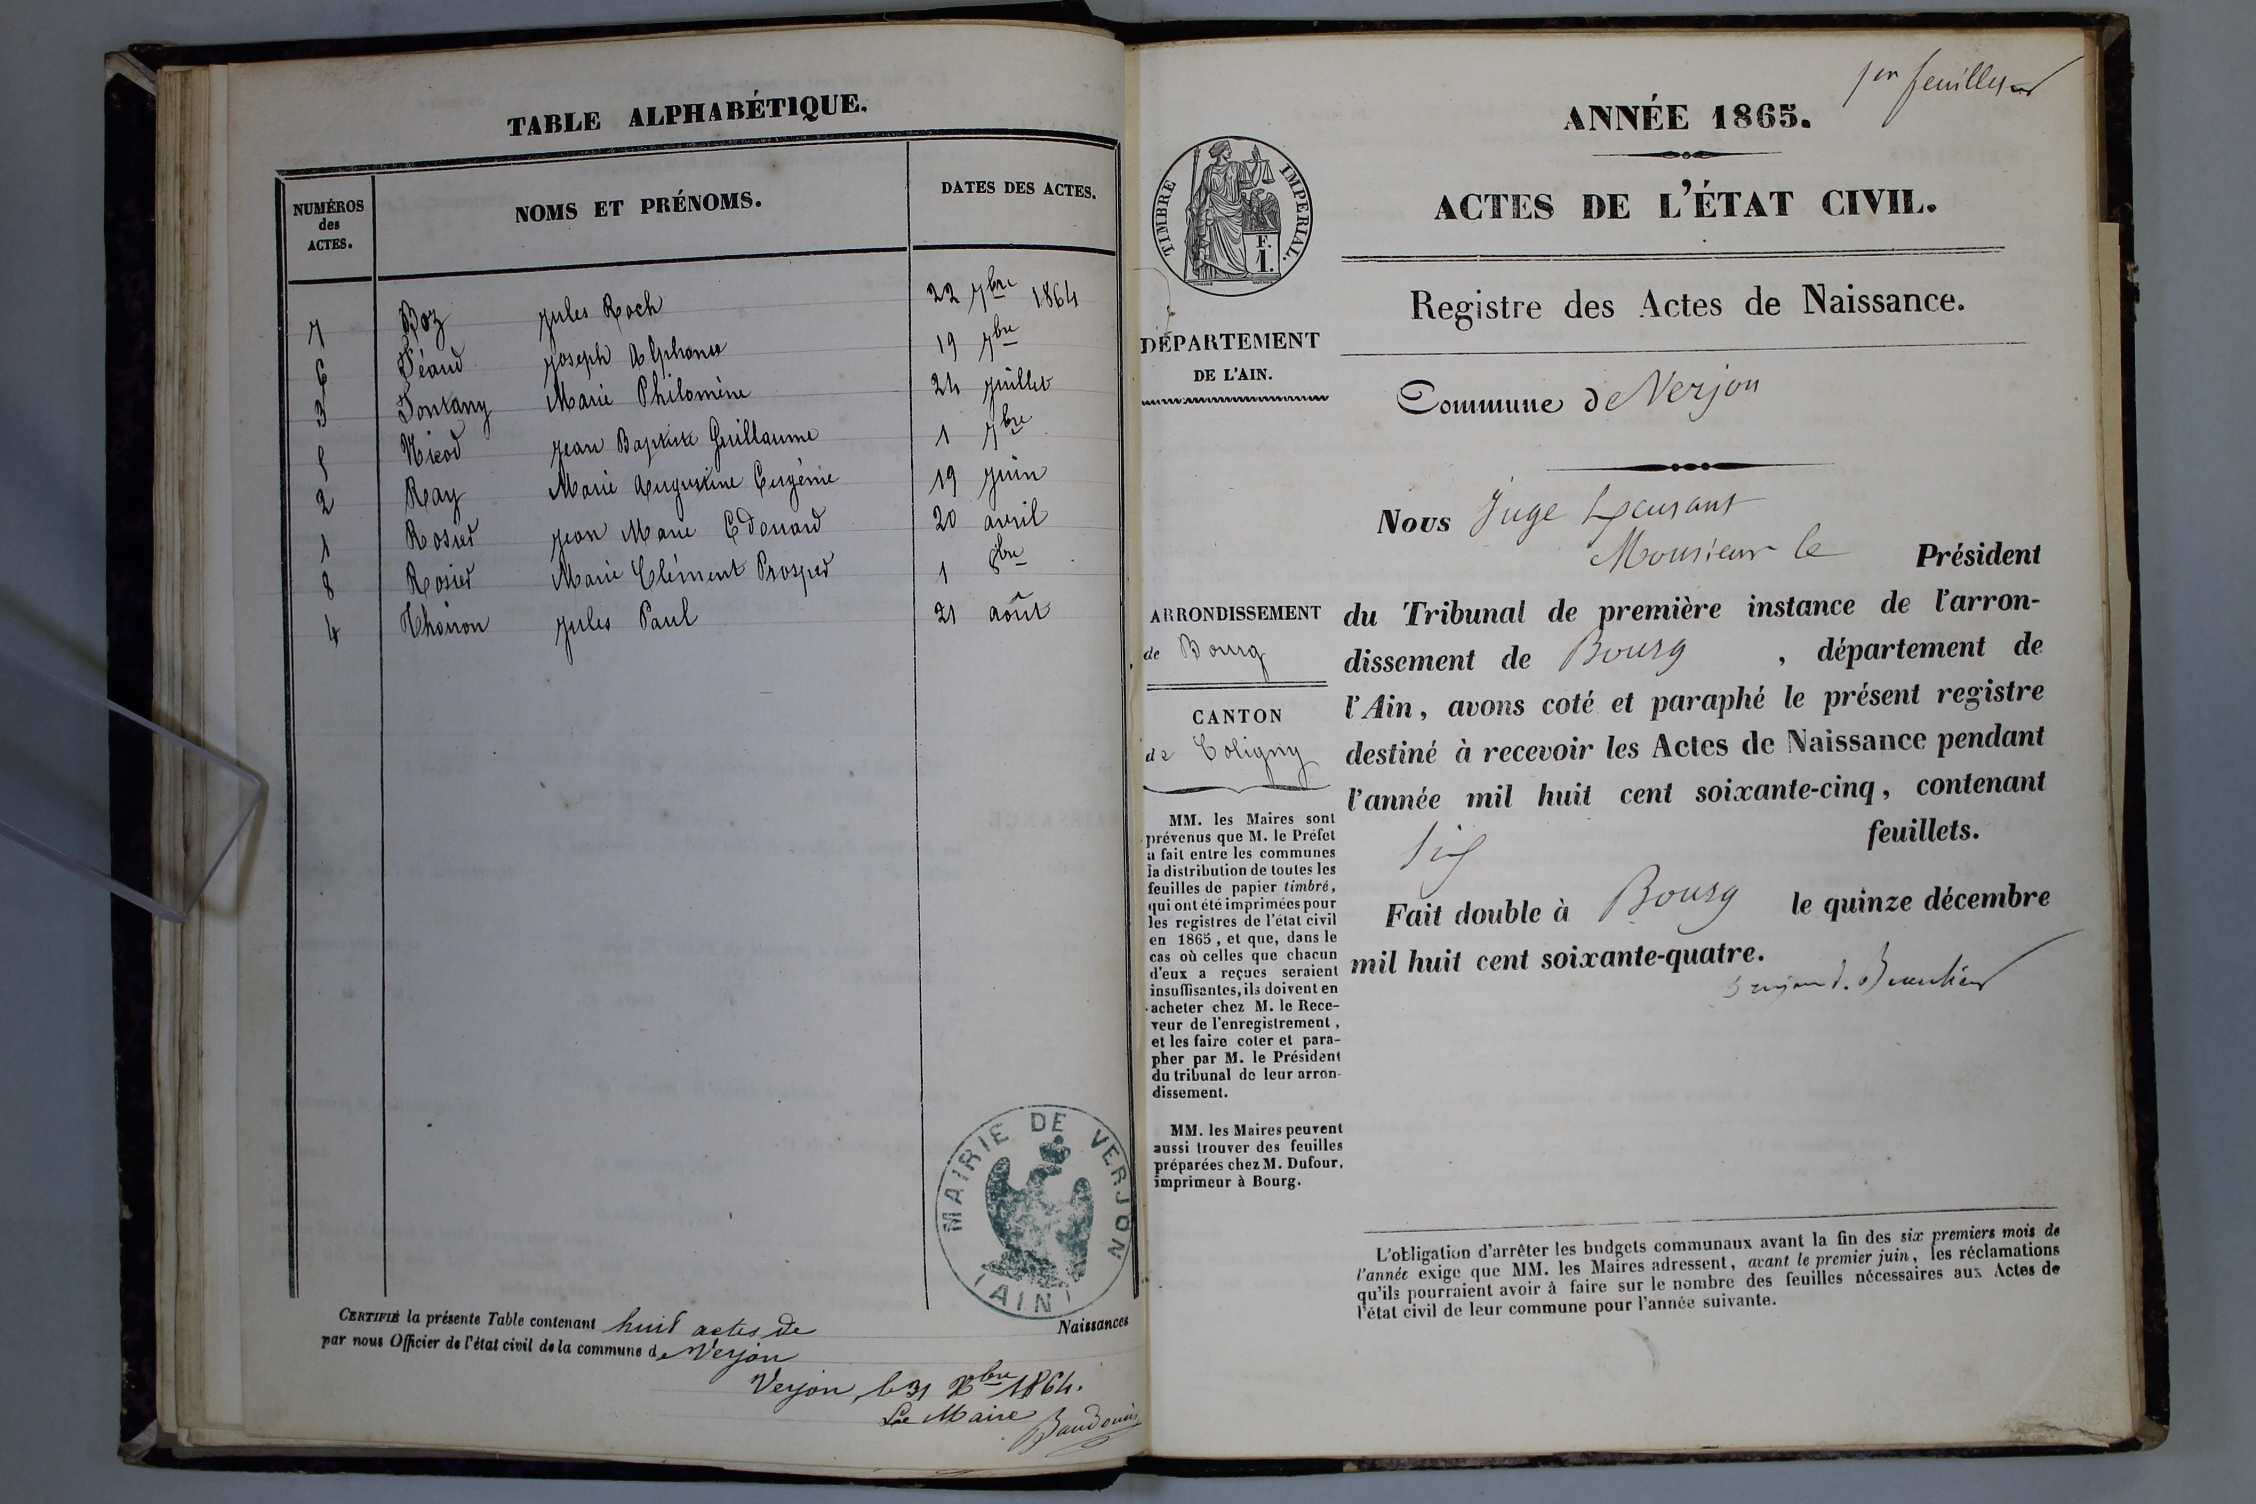 TABLE ALPHABÉTIQUE.
NUMÉROS des ACTES. NOMS ET PRÉNOMS. DATES DES ACTES.
7 Boz Jules Roch 22 7bre 1864
6 Féaud Joseph Alphonse 19 7bre
3 Fontany Marie Philomène 24 juillet
5 Nicod Jean Baptiste Guillaume 1 7bre
2 Ray Marie Augustine Eugénie 19 juin
1 Rosier Jean Marie Edouard 20 avril
8 Rosier Marie Clément Prosper 1 8bre
4 Thoiron Jules Paul 21 août
MAIRIE DE VERJON
(AIN)
CERTIFIÉ la présente Table contenant huit actes de Naissances
par nous Officier de l'état civil de la commune de Verjon
Verjon, le 31 Xbre 1864.
Le Maire
Baudouin
1er feuillet
ANNÉE 1865.
TIMBRE IMPERIAL.
F.
1.
ACTES DE L'ÉTAT CIVIL.
Registre des Actes de Naissance.
DÉPARTEMENT
DE L'AIN.
Commune de Verjon
ARRONDISSEMENT
de Bourg
CANTON
de Coligny
MM. les Maires sont
prévenus que M. le Préfet
a fait entre les communes
la distribution de toutes les
feuilles de papier timbré,
qui ont été imprimées pour
les registres de l'état civil
en 1865, et que, dans le
cas où celles que chacun
d'eux a reçues seraient
insuffisantes, ils doivent en
acheter chez M. le Rece-
veur de l'enregistrement,
et les faire coter et para-
pher par M. le Président
du tribunal de leur arron-
dissement.
MM. les Maires peuvent
aussi trouver des feuilles
préparées chez M. Dufour,
imprimeur à Bourg.
Nous Juge
Monsieur le Président
du Tribunal de première instance de l'arron-
dissement de Bourg, département de
l'Ain, avons coté et paraphé le présent registre
destiné à recevoir les Actes de Naissance pendant
l'année mil huit cent soixante-cinq, contenant
six feuillets.
Fait double à Bourg le quinze décembre
mil huit cent soixante-quatre.
L'obligation d'arrêter les budgets communaux avant la fin des six premiers mois de
l'année exige que MM. les Maires adressent, avant le premier juin, les réclamations
qu'ils pourraient avoir à faire sur le nombre des feuilles nécessaires aux Actes de
l'état civil de leur commune pour l'année suivante.